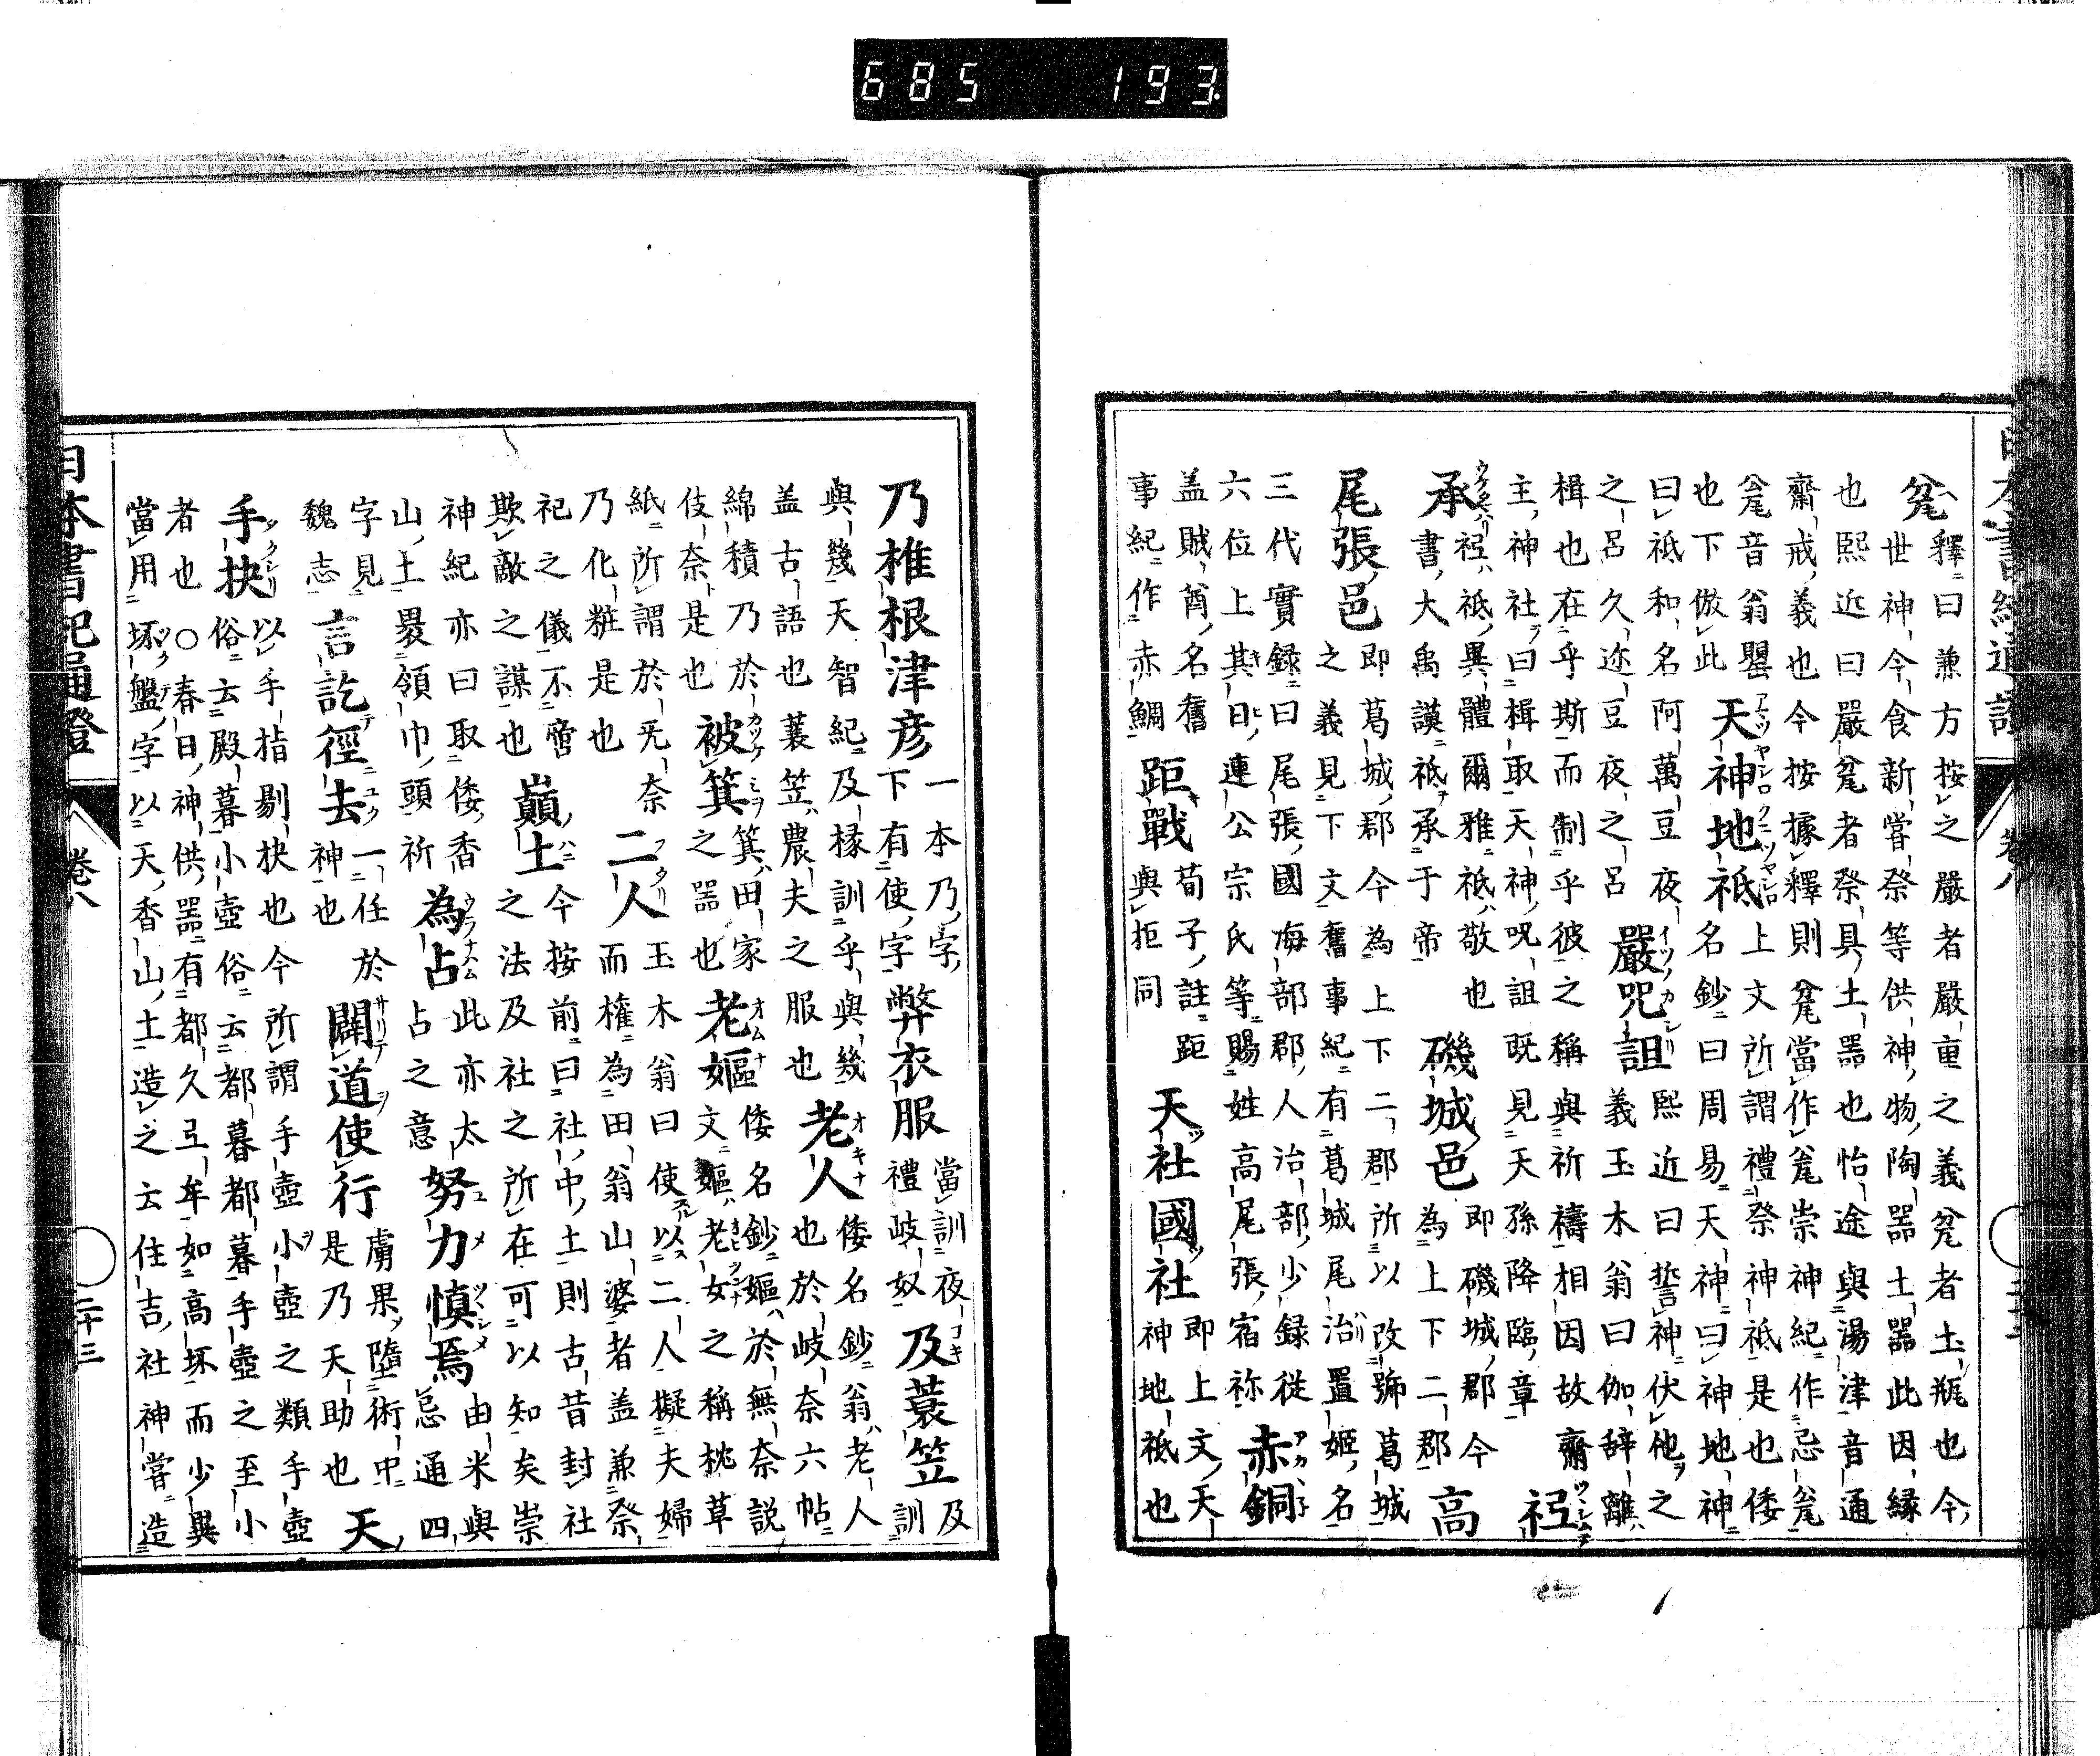 685 193
瓫 釋曰兼方按之嚴者嚴重之義瓫者土瓶也今
世神今食新嘗祭等供神物陶器土器此因縁
也熙近曰嚴瓫者祭具土器也怡途與湯津音通
齋戒義也今按據釋則瓫當作瓮崇神紀作忌瓫
瓮音翁罌 天神地祇 上文所謂禮祭神祇是也倭
也下倣此 名鈔曰周易天神曰神地神
曰祇和名阿萬豆夜 嚴咒詛 熙近曰誓神伏他之
之呂久迩豆夜之呂 義玉木翁曰伽辞離
楫也在乎斯而制乎彼之稱與祈禱相因故齋
主神社曰楫取天神呪詛既見天孫降臨章 祗
承 祗祇異體爾雅祇敬也
書大禹謨祇承于帝 磯城邑 即磯城郡今
為上下二郡 高
尾張邑 即葛城郡今為上下二郡所以改號葛城
之義見下文舊事紀有葛城尾治置姬名
三代實録曰尾張國海部郡人治部少録從
六位上其日連公宗氏等賜姓高尾張宿祢 赤銅
盖賊酋名舊
事紀作赤鯛 距戰 荀子註距
與拒同 天社國社 即上文天
神地祇也
日本書紀通證 卷八
乃椎根津彦 一本乃字
下有使字 弊衣服 當訓夜
禮岐奴 及蓑笠 及
訓
與幾天智紀及椽訓乎與幾
盖古語也蓑笠農夫之服也 老人 倭名鈔翁老人
也於岐奈六帖
綿積乃於
伎奈是也 被箕 箕田家
之器也 老嫗 倭名鈔嫗於無奈説
文嫗老女之稱枕草
紙所謂於旡奈
乃化粧是也 二人 玉木翁曰使以二人擬夫婦
而權為田翁山婆者盖兼祭
祀之儀不啻
欺敵之謀也 巔土 今按前曰社中土則古昔封社
之法及社之所在可以知矣崇
神紀亦曰取倭香
山土褁領巾頭祈 為占 此亦太
占之意 努力慎焉 由米與
忌通四
字見
魏志 言訖徑去 一任於
神也 闢道使行 虜果墮術中
是乃天助也 天
手抉 以手指剔抉也今所謂手壺小壺之類手壺
俗云殿暮小壺俗云都暮都暮手壺之至小
者也〇春日神供器有都久弖牟如高坏而少異
當用坏盤字以天香山土造之云住吉社神嘗造
日本書紀通證 卷八 二十三